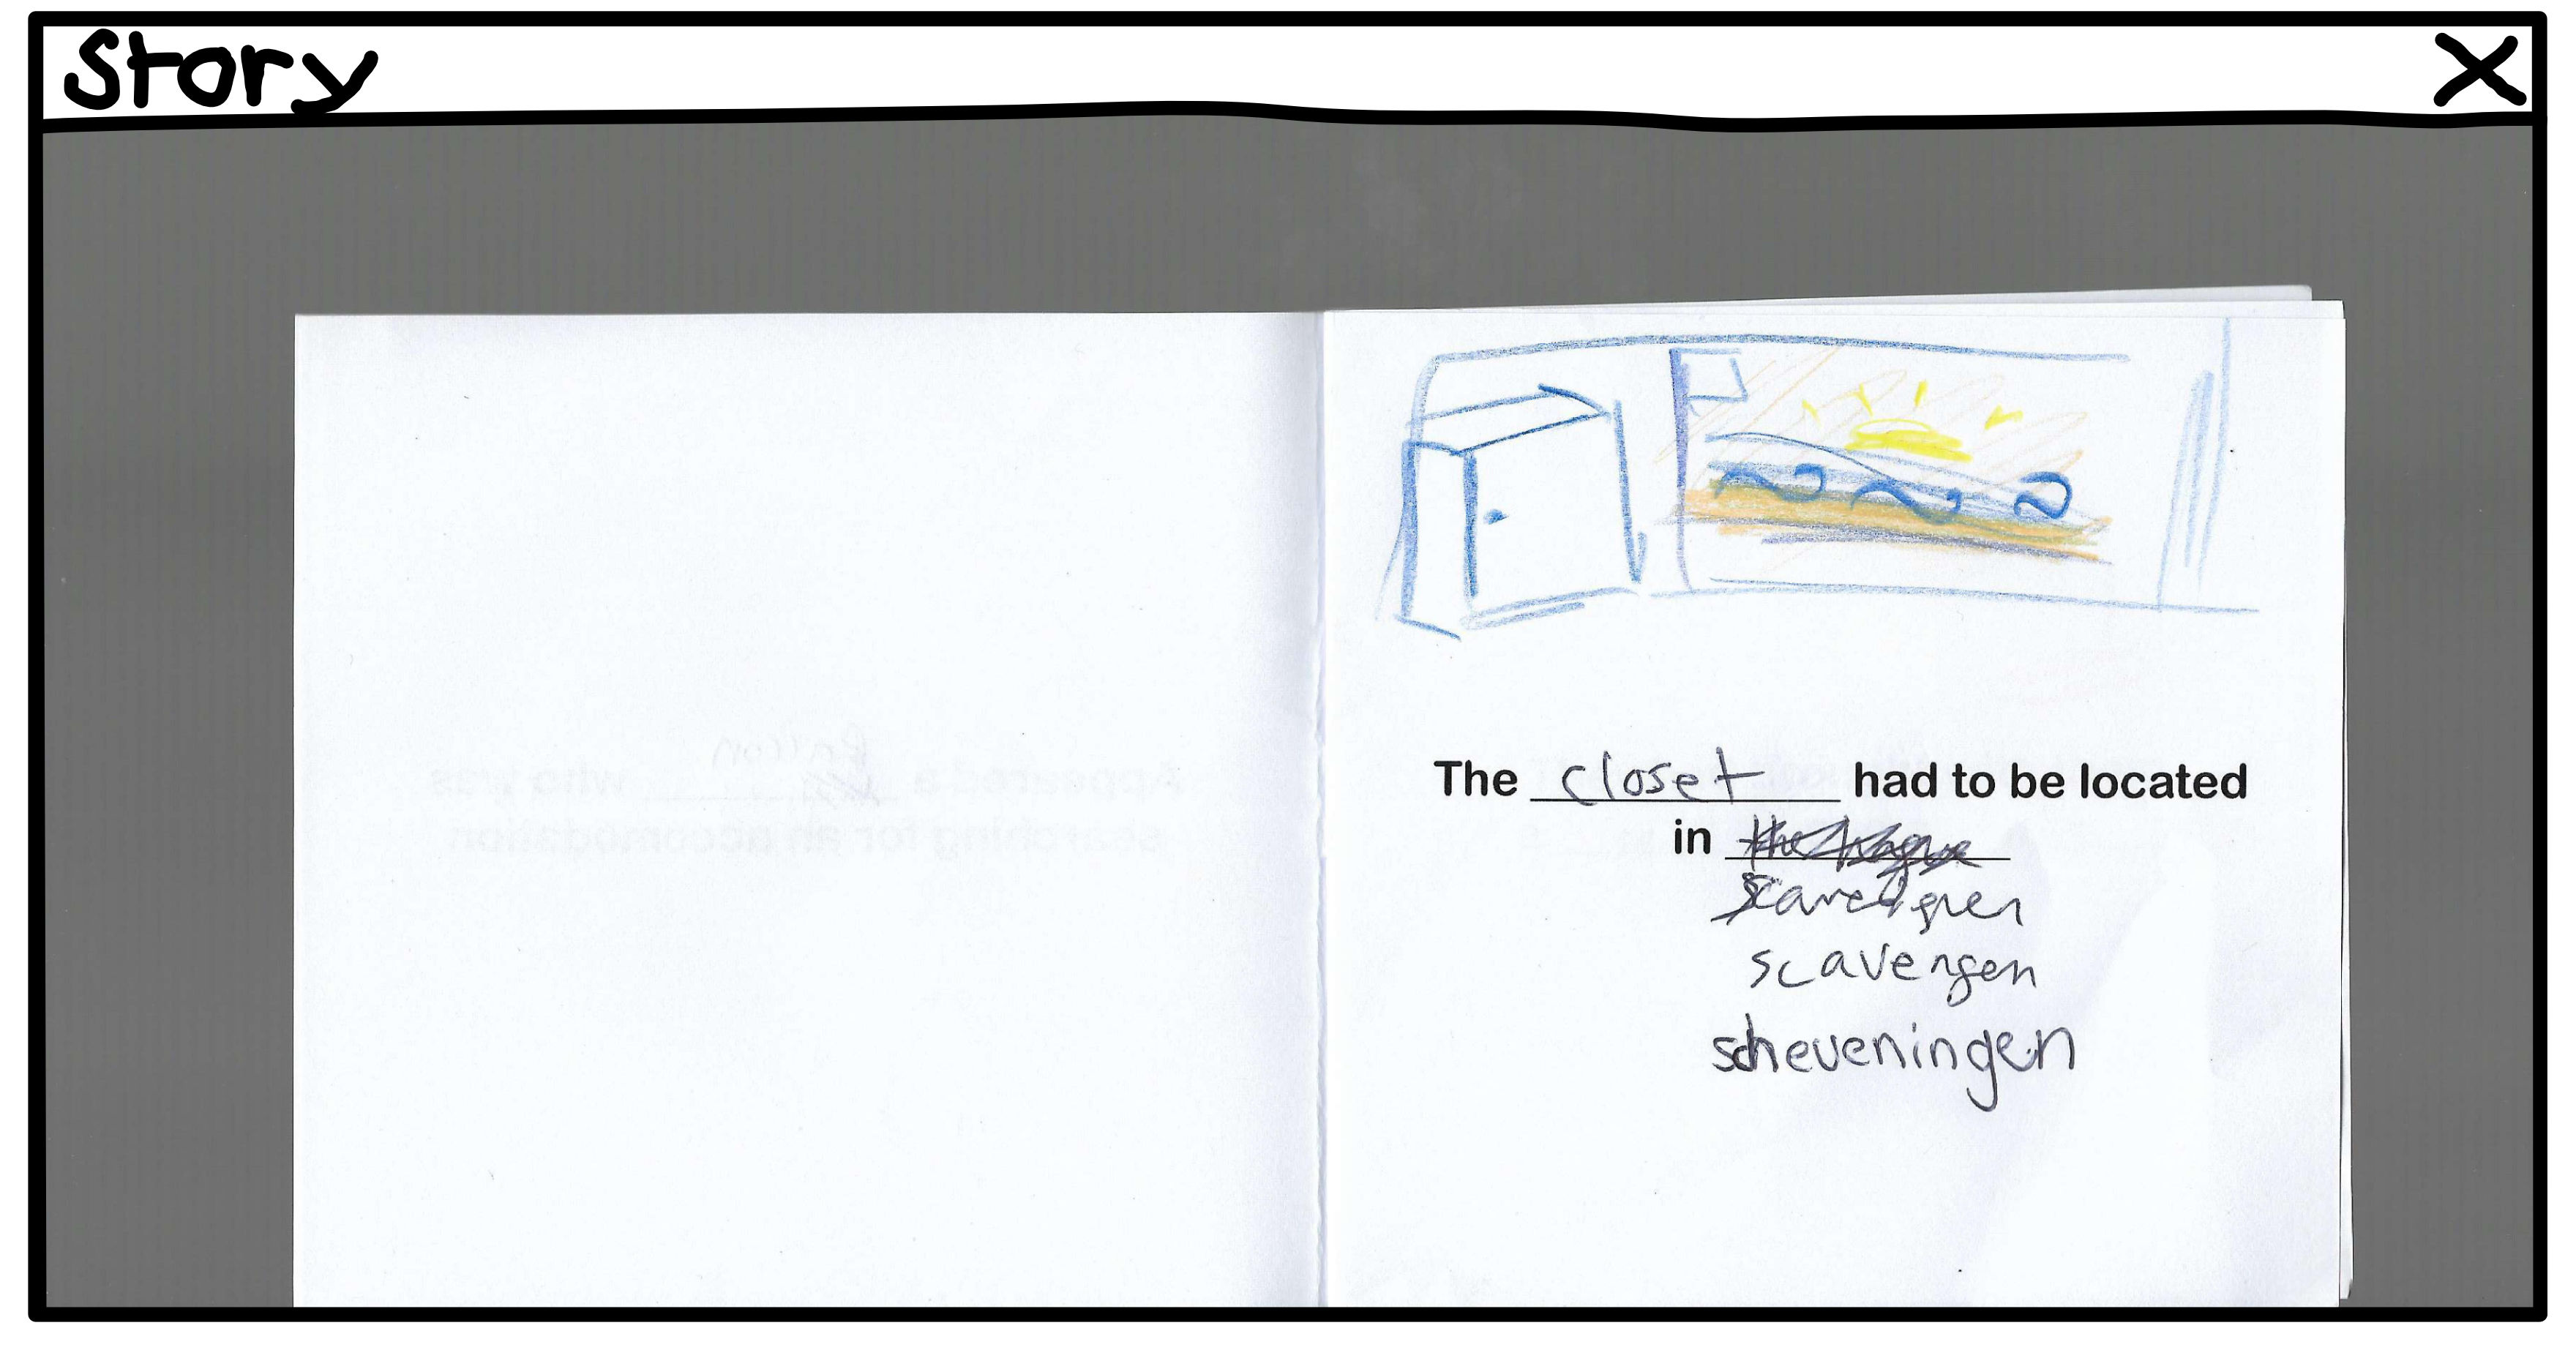 Story X
The closet had to be located
in the hague
scavengen
scheveningen